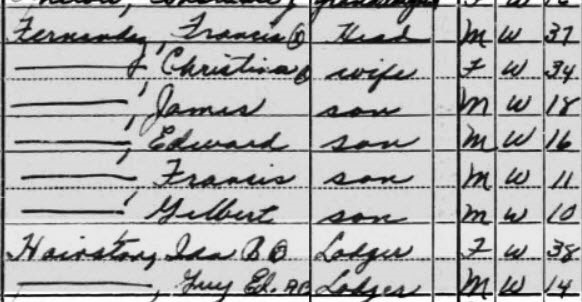 Fernandez, Francis Head M W 37
——, Christina wife F W 34
——, James son M W 18
——, Edward son M W 16
——, Francis son M W 11
——, Gilbert son M W 10
Hairston, Ida B Lodger F W 38
——, Guy Ed. Lodger M W 14